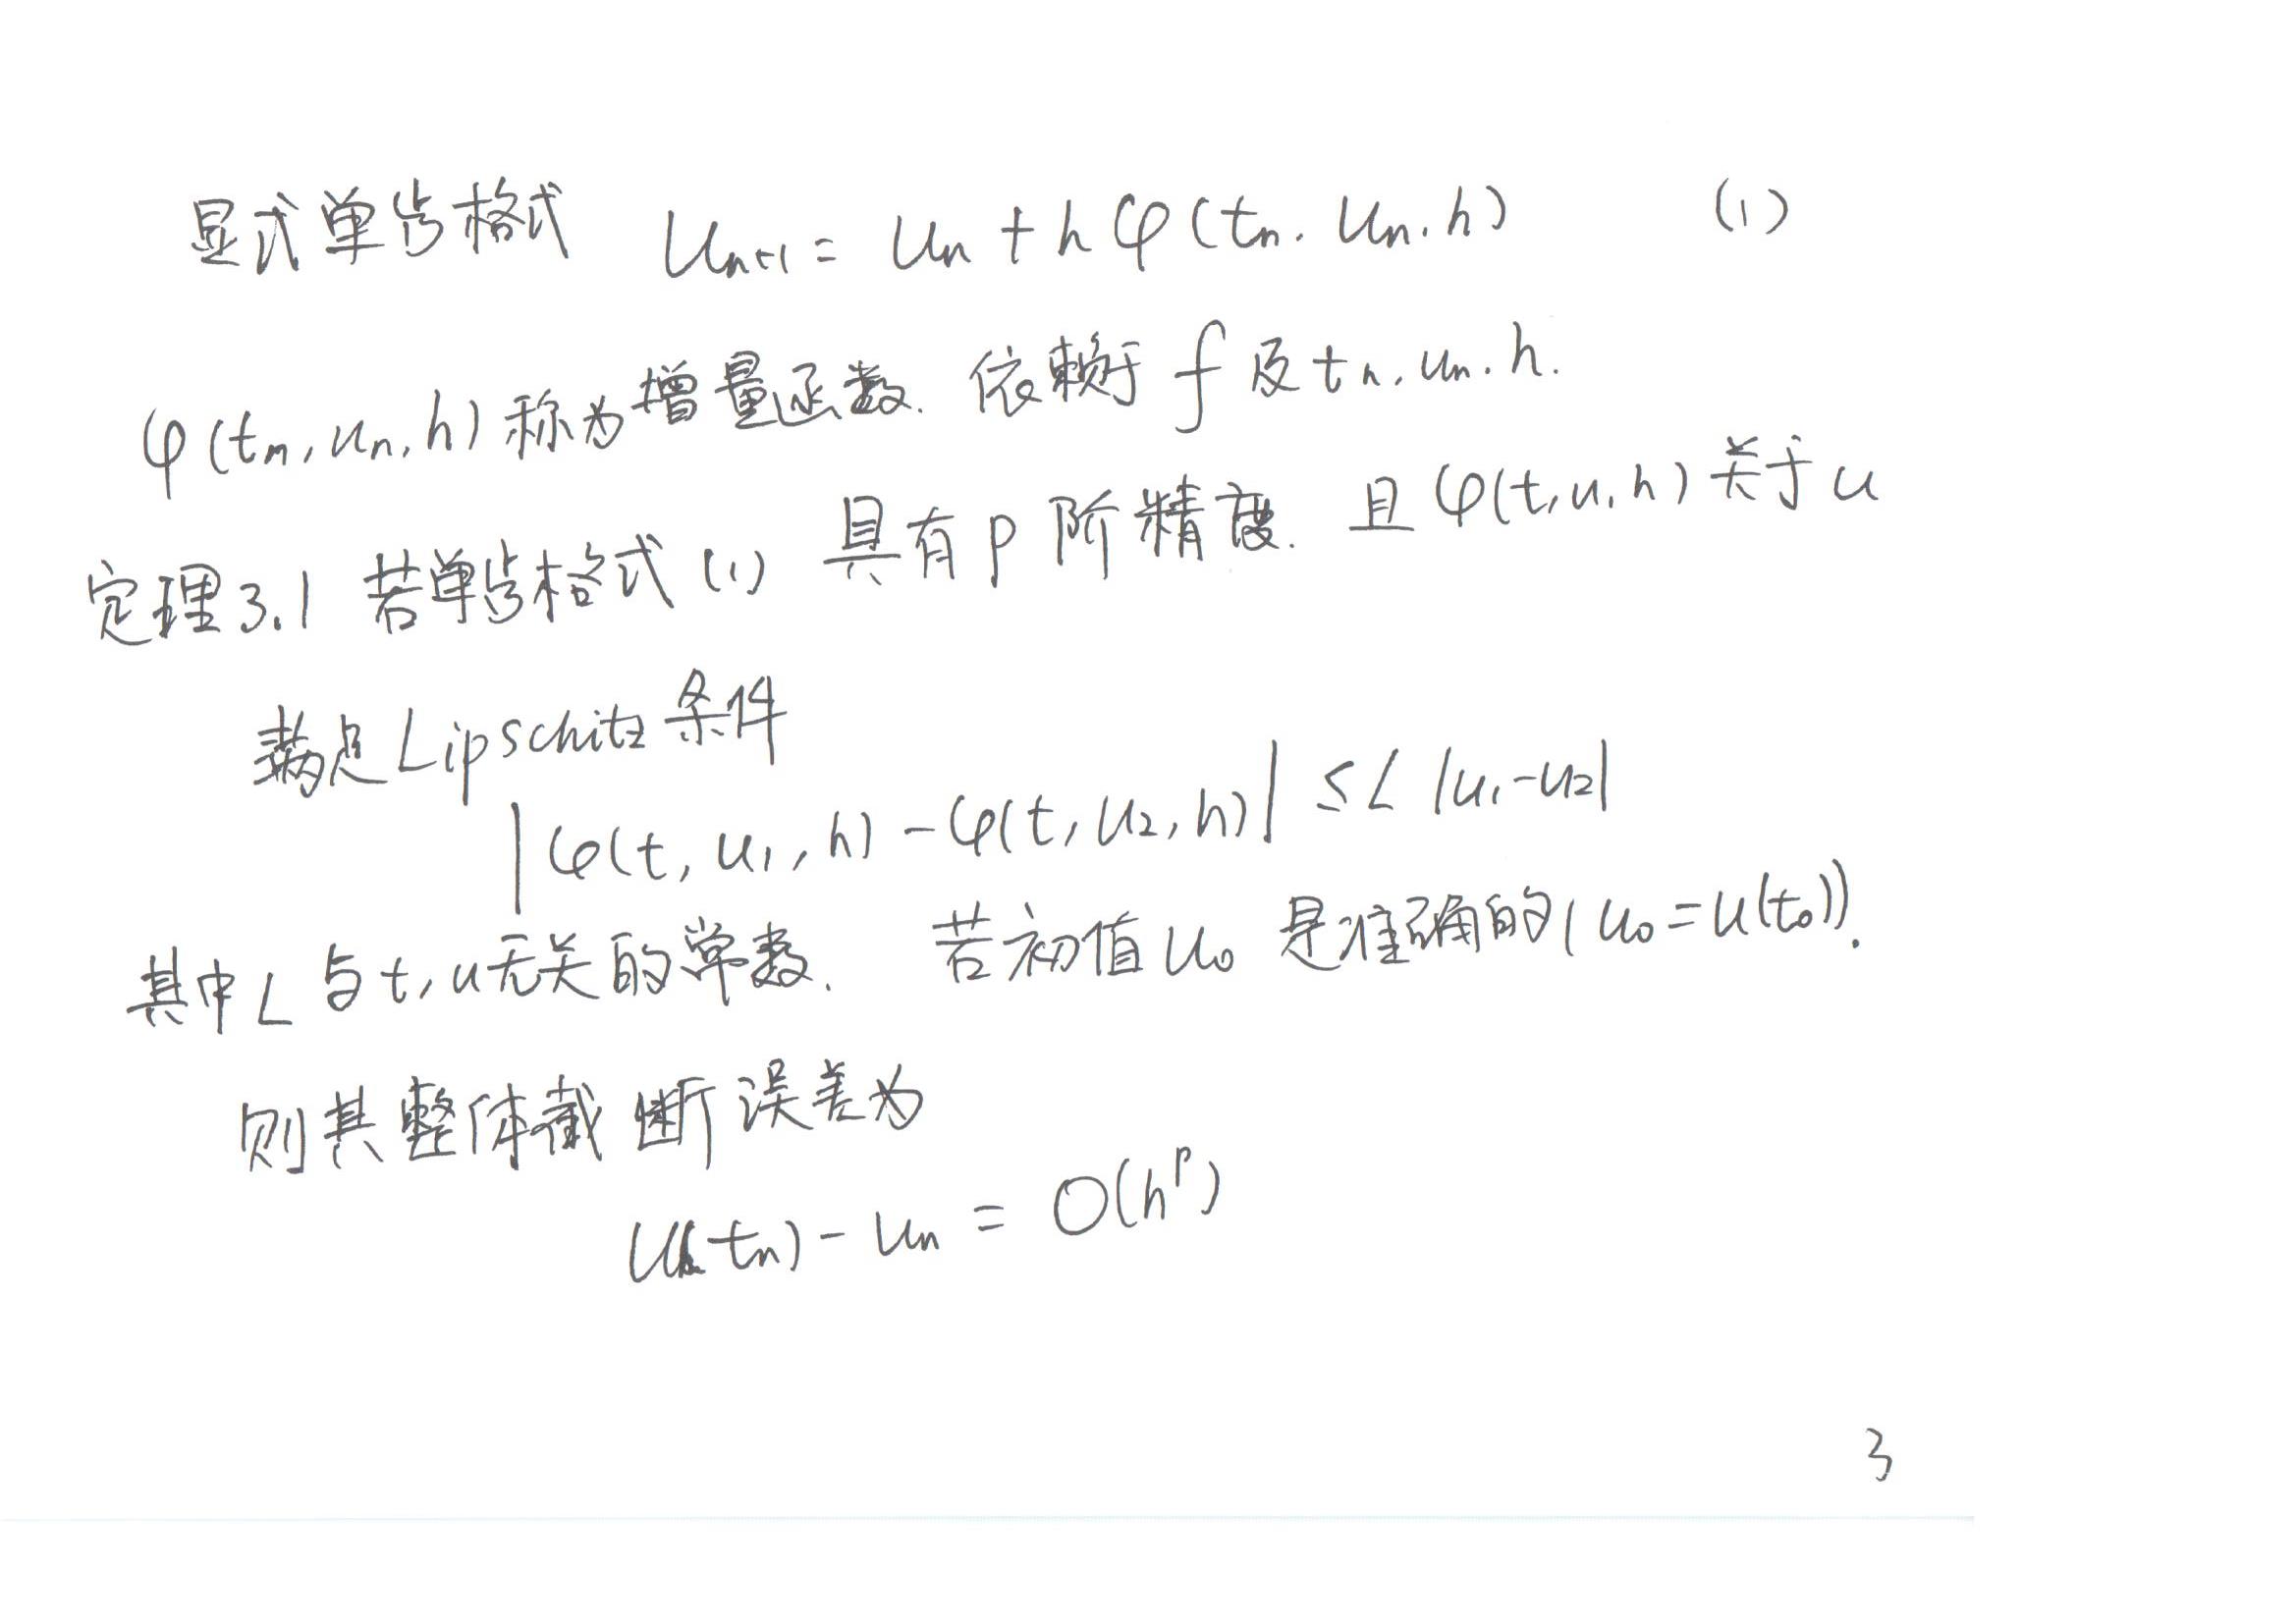 显式单步格式 Un+1 = Un + h φ(tn, Un, h) (1)
φ(tn, un, h) 称为增量函数. 依赖于 f 及 tn, un, h.
定理3.1 若单步格式(1) 具有 p 阶精度. 且 φ(t, u, h) 关于 u
满足 Lipschitz 条件
|φ(t, u1, h) - φ(t, u2, h)| ≤ L |u1 - u2|
其中 L 与 t, u 无关的常数. 若初值 u0 是准确的 (u0 = u(t0)).
则其整体截断误差为
u(tn) - un = O(h^p)
3